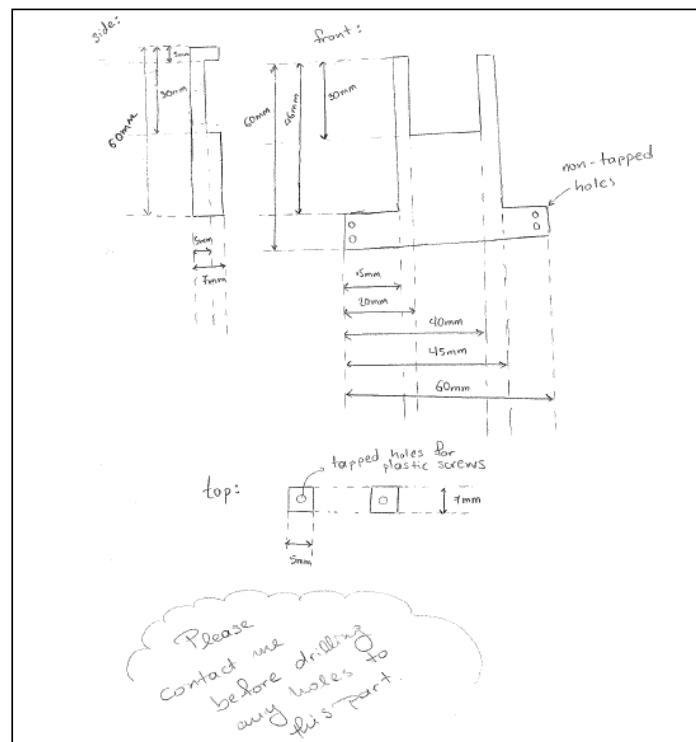 side:
front:
5mm
30mm
60mm
60mm
46mm
30mm
non-tapped
holes
5mm
7mm
15mm
20mm
40mm
45mm
60mm
tapped holes for
plastic screws
top:
7mm
5mm
Please
contact me
before drilling
any holes to
this part.